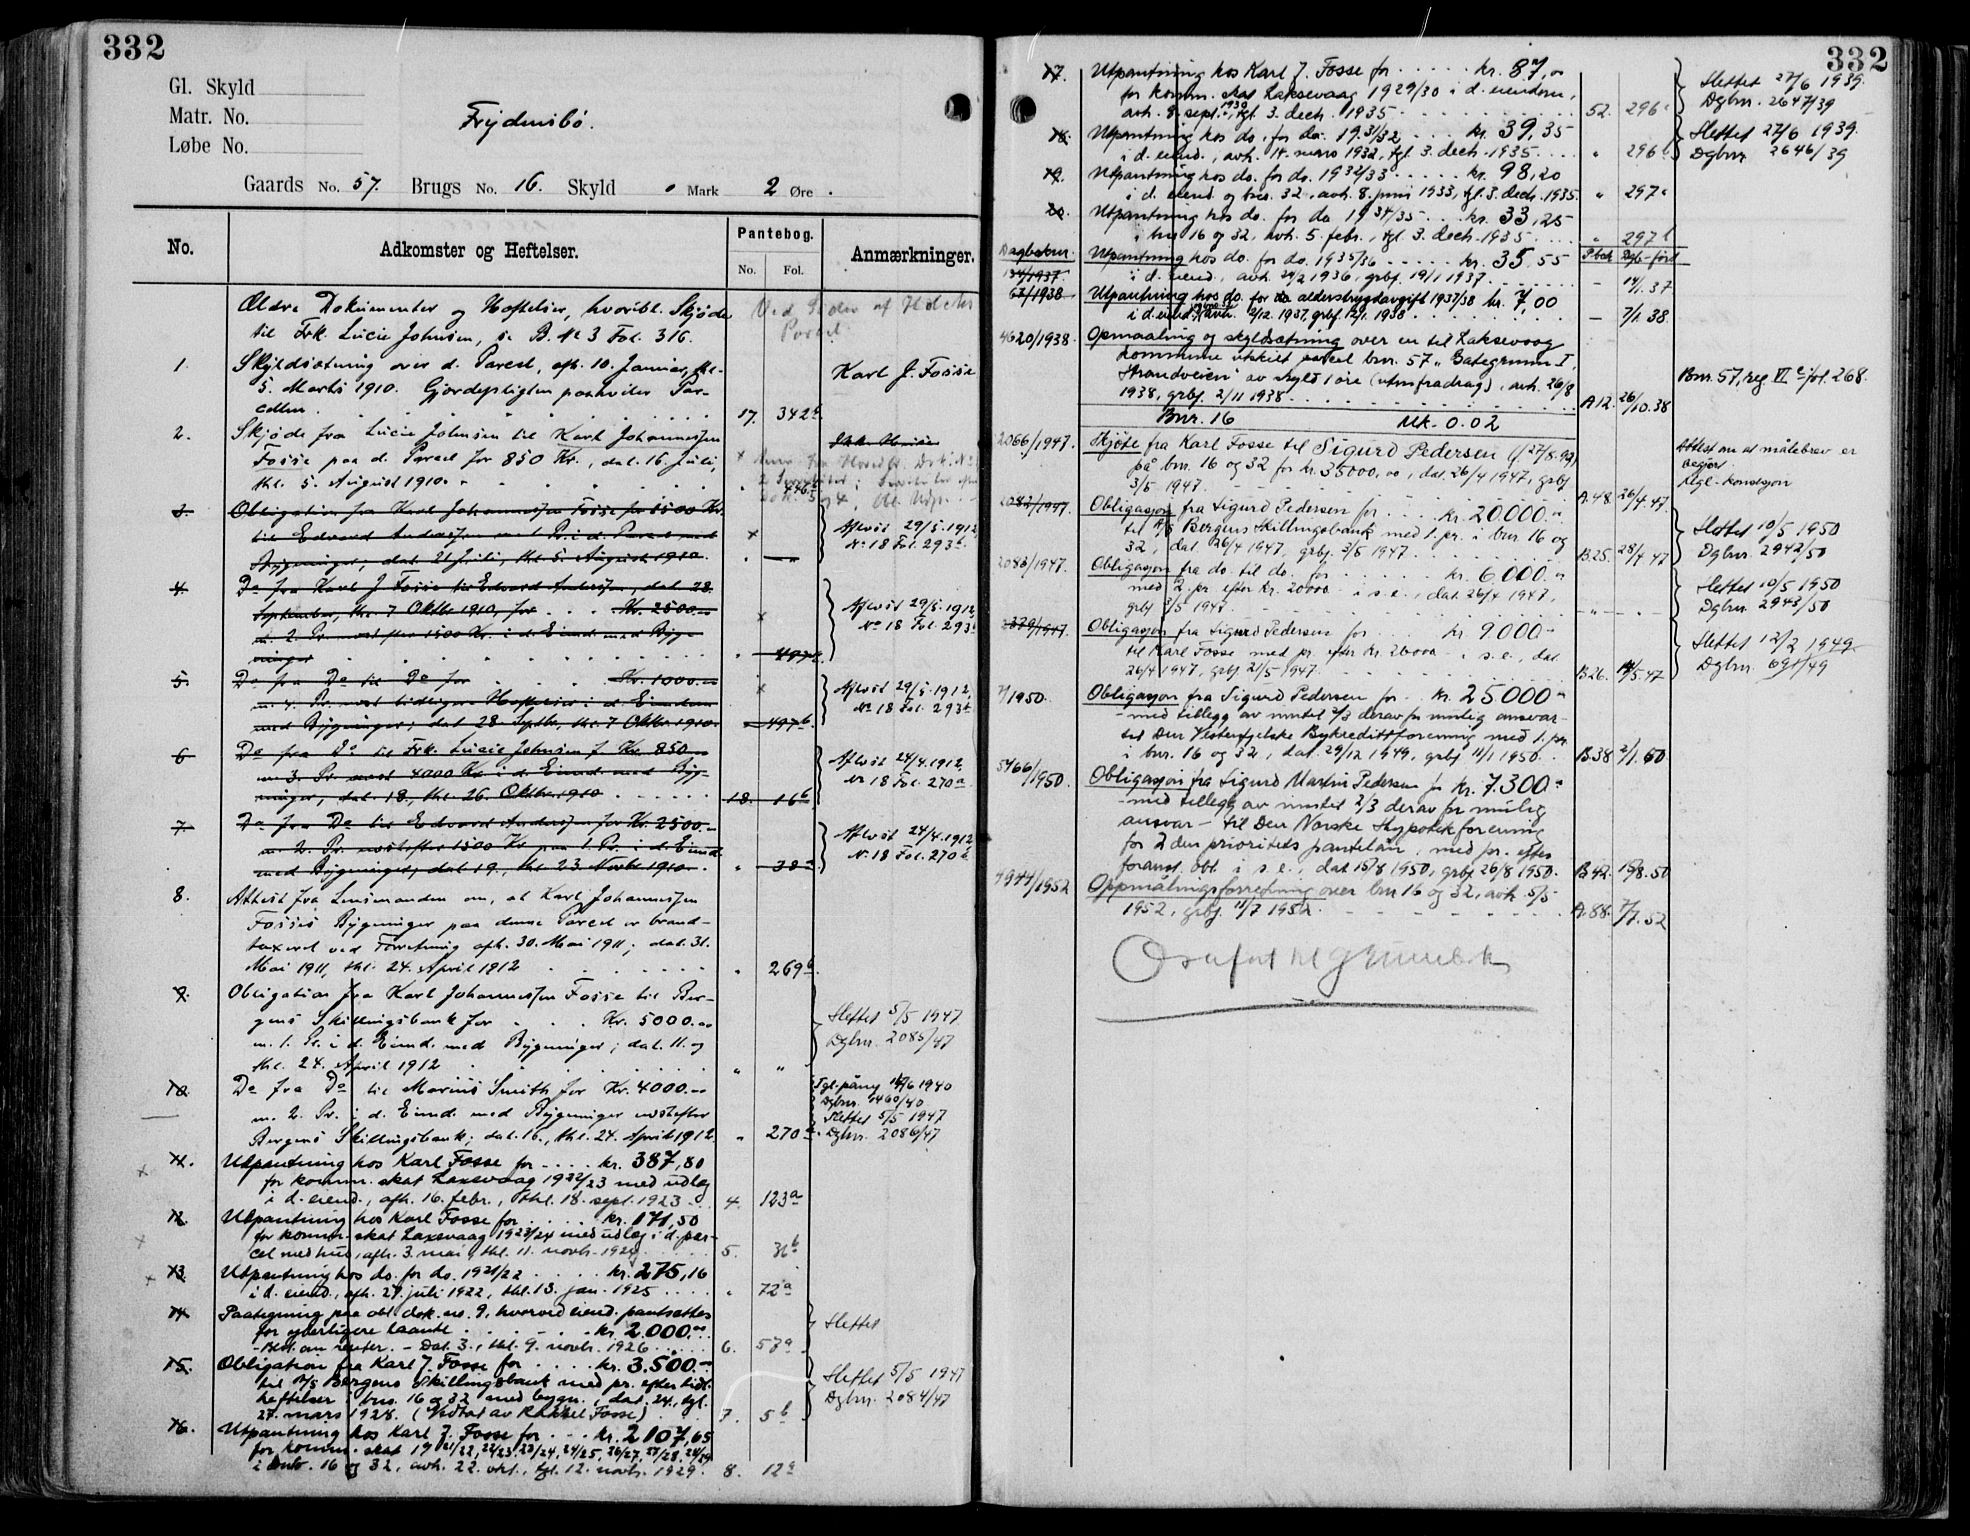 332
Gl. Skyld
Matr. No.
Løbe No.
Frydensbø.
Gaards No. 57. Brugs No. 16. Skyld 0 Mark 2 Øre.
No. Adkomster og Heftelser. Pantebog. No. Fol. Anmærkninger.
Ældre Dokumenter og Heftelser, hvoribl. Skjøde
til Frk. Lucie Johnsen, se B. No 3 Fol. 316.
1. Skyldsætning over d. Parcel, afh. 10. Januar, thl. Karl J. Fosse
5. Marts 1910. Gjerdepligten paahviler Par-
cellen. 17. 342b
2. Skjøde fra Lucie Johnsen til Karl Johannessen
Fosse paa d. Parcel for 850 Kr., dat. 16. Juli,
thl. 5. August 1910. " 446b
3. Obligation fra Karl Johannessen Fosse for 1500 Kr.
til Edvard Andersen med 1. Pr. i d. Parcel med
Bygninger, dat. 21 Juli, thl. 5. August 1910. " — "
Aflöst 29/5.1912,
No 18 Fol. 293b
4. Do fra Karl J Fosse til Edvard Andersen, dat. 28.
September, thl. 7 Oktbr 1910, for Kr. 2500.00
m. 2. Pr. næst efter 1500 Kr. i d. Eiend. med Byg-
ninger " 497b
Aflöst 29/5.1912,
No 18 Fol. 293b
5. Do fra Do til Do for Kr. 1000.00
m. 4. Pr. næst tidligere Heftelser i d. Eiendom
med Bygninger, dat. 28. Septbr, thl. 7 Oktbr 1910. " 497b
Aflöst 29/5.1912,
No 18 Fol. 293b
6. Do fra Do til Frk. Lucie Johnsen f. Kr. 850.00
m. 3. Pr. næst 4000 Kr. i d. Eiend. med Byg-
ninger, dat. 18., thl. 26. Oktbr. 1910 18. 16b
Aflöst 24/4.1912,
No 18 Fol. 270a
7. Do fra Do til Edvard Andersen for Kr. 2500.00
m. 2. Pr. næstefter 1500 Kr. paa 1. Pr. i d. Eiend.
med Bygninger, dat. 19., thl. 23. Novbr 1910. " 38a
Aflöst 24/4.1912,
No 18 Fol. 270a
8. Attest fra Lensmanden om, at Karl Johannessen
Fosses Bygninger paa denne Parcel er brand-
taxeret ved Forretning afh. 30. Mai 1911; dat. 31.
Mai 1911, thl. 24. April 1912 " 269b
9. Obligation fra Karl Johannessen Fosse til Ber-
gens Skillingsbank for Kr. 5000.00
m. 1. Pr. i d. Eiend. med Bygninger; dat. 11. og
thl. 24. April 1912 " "
Slettet 5/5 1947
Dgbnr. 2085/47
10. Do fra Do til Marius Smith for Kr. 4000.00
m. 2. Pr. i d. Eiend. med Bygninger næstefter
Bergens Skillingsbank; dat. 16., thl. 24. April 1912. " 270a
Tgl. påny 14/6 1940
Dgbnr. 1460/40
Slettet 5/5 1947
Dgbnr. 2086/47
11. Utpantning hos Karl Fosse for kr. 387,80
for komm. skat Laxevaag 1922/23 med udlæg
i d. eiend., afh. 16. febr., thl. 18. sept. 1923 4. 123a
12. Utpantning hos Karl Fosse for kr. 171,50
for komm. skat Laxevaag 1923/24 med udlæg i d. par-
cel med hus, afh. 3. mai, thl. 11. novb. 1924 5. 31b
13. Utpantning hos do. for do. 1921/22 kr. 275,16
i d. eiend., afh. 27. juli 1922, thl. 13. jan. 1925 " 72a
14. Paategning paa obl. dok. no. 9, hvorved eiend. pantsættes
for yderligere laante kr. 2.000.00
- Best. om renter. - Dat. 3., thl. 9. novb. 1926 6. 58a
Slettet
15. Obligation fra Karl J. Fosse for kr. 3.500.00
til A/S Bergens Skillingsbank med pr. efter tidl.
heftelser i bnr. 16 og 32 med bygn., dat. 24., tgl.
27. mars 1928. (Vedtat av Rakkel Fosse) 7. 5b
Slettet 5/5 1947
Dgbnr. 2084/47
16. Utpantning hos Karl J. Fosse for kr. 2107,65
for komm. skat 1921/22, 22/23, 23/24, 24/25, 26/27, 27/28, 28/29
i bnr. 16 og 32, avh. 22. okt., tgl. 12. novb. 1929. 8. 12a
332
17. Utpantning hos Karl J. Fosse for kr. 87,00
for komm. skat Laksevaag 1929/30 i d. eiendom,
avh. 8. sept. 1930, tgl. 3. decb. 1935 52. 296a
Slettet 27/6 1939.
Dgbnr. 2647/39
18. Utpantning hos do. for do. 1931/32 kr. 39,35
i d. eiend., avh. 14. mars 1932, tgl. 3. decb. 1935. " 296b
Slettet 27/6 1939.
Dgbnr. 2646/39
19. Utpantning hos do. for do. 1932/33 kr. 98,20
i d. eiend. og bnr. 32, avh. 8. juni 1933, tgl. 3. decb. 1935. " 297a
20. Utpantning hos do. for do 1934/35 kr. 33,25
i bnr 16 og 32, avh. 5. febr., tgl. 3. decb. 1935 " 297b
Dagboknr. P.bok Dgb-ført
134/1937 Utpantning hos do. for do. 1935/36 kr. 35,55
i d. eiend., avh. 24/2 1936, grbf. 19/1 1937. - 14/1.37
63/1938 Utpantning hos do. for do alderstrygdavgift 1937/38 kr. 7,00
i d. eiend., avh. 2/12. 1937, grbf. 12/1. 1938 - 7/1.38.
4620/1938. Opmaaling og skyldsætning over en til Laksevaag
kommune utskilt parcel bnr. 57 „Gategrunn I,
Strandveien" av skyld 1 øre (uten fradrag), avh. 26/8
1938, grbf. 2/11 1938 A 12. 26/10.38
Bnr. 57, reg VI c fol. 268.
Bnr. 16 Mk. 0.02
2066/1947. Skjøte fra Karl Fosse til Sigurd Pedersen (f 27/8.92)
på bnr. 16 og 32 for kr. 35000,00, dat. 26/4 1947, grbf.
3/5 1947. A.48. 26/4.47.
Attest om at målebrev er
begjært
Regl.-konsesjon
2082/1947. Obligasjon fra Sigurd Pedersen for kr. 20.000.-
til A/S Bergens Skillingsbank med 1. pr. i bnr. 16 og
32, dat. 26/4 1947, grbf. 3/5 1947 B.25. 28/4.47
Slettet 10/5 1950
Dgbnr. 2942/50
2083/1947. Obligasjon fra do. til do. for kr. 6.000.-
med 2. pr. efter kr. 20000.- i s.e., dat. 26/4 1947,
grbf. 3/5 1947. - " - "
Slettet 10/5 1950
Dgbnr. 2943/50
2339/1947. Obligasjon fra Sigurd Pedersen for kr. 9000.-
til Karl Fosse med pr. efter kr. 26000.- i s.e., dat.
26/4 1947, grbf. 21/5 1947. B 26. 14/5.47
Slettet 12/2 1949
Dgbnr. 691/49
7/1950. Obligasjon fra Sigurd Pedersen for kr. 25000.-
- med tillegg av inntil 2/3 derav for mulig ansvar -
til Den Vesterfjelske Bykredittforening med 1. pr.
i bnr. 16 og 32, dat. 29/12 1949, grbf. 11/1 1950. B.38 2/1.50
5466/1950. Obligasjon fra Sigurd Martin Pedersen for kr. 7.300.-
- med tillegg av inntil 2/3 derav for mulig
ansvar - til Den Norske Hypotekforening
for 2den prioritets pantelån, med pr. efter
foranst. obl. i s.e., dat. 15/8 1950, grbf. 26/8 1950. B 42. 18/8.50
4944/1952 Oppmålingsforretning over bnr 16 og 32, avh. 5/5
1952, grbf. 11/7 1952. A.88. 7/7.52
Overført til grunnbok